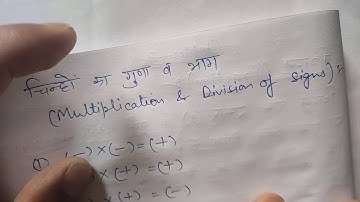 चिन्हों का गुणा व भाग
(Multiplication & Division of Signs) :-
(1) (-) × (-) = (+)
× (+) = (+)
× (+) = (-)